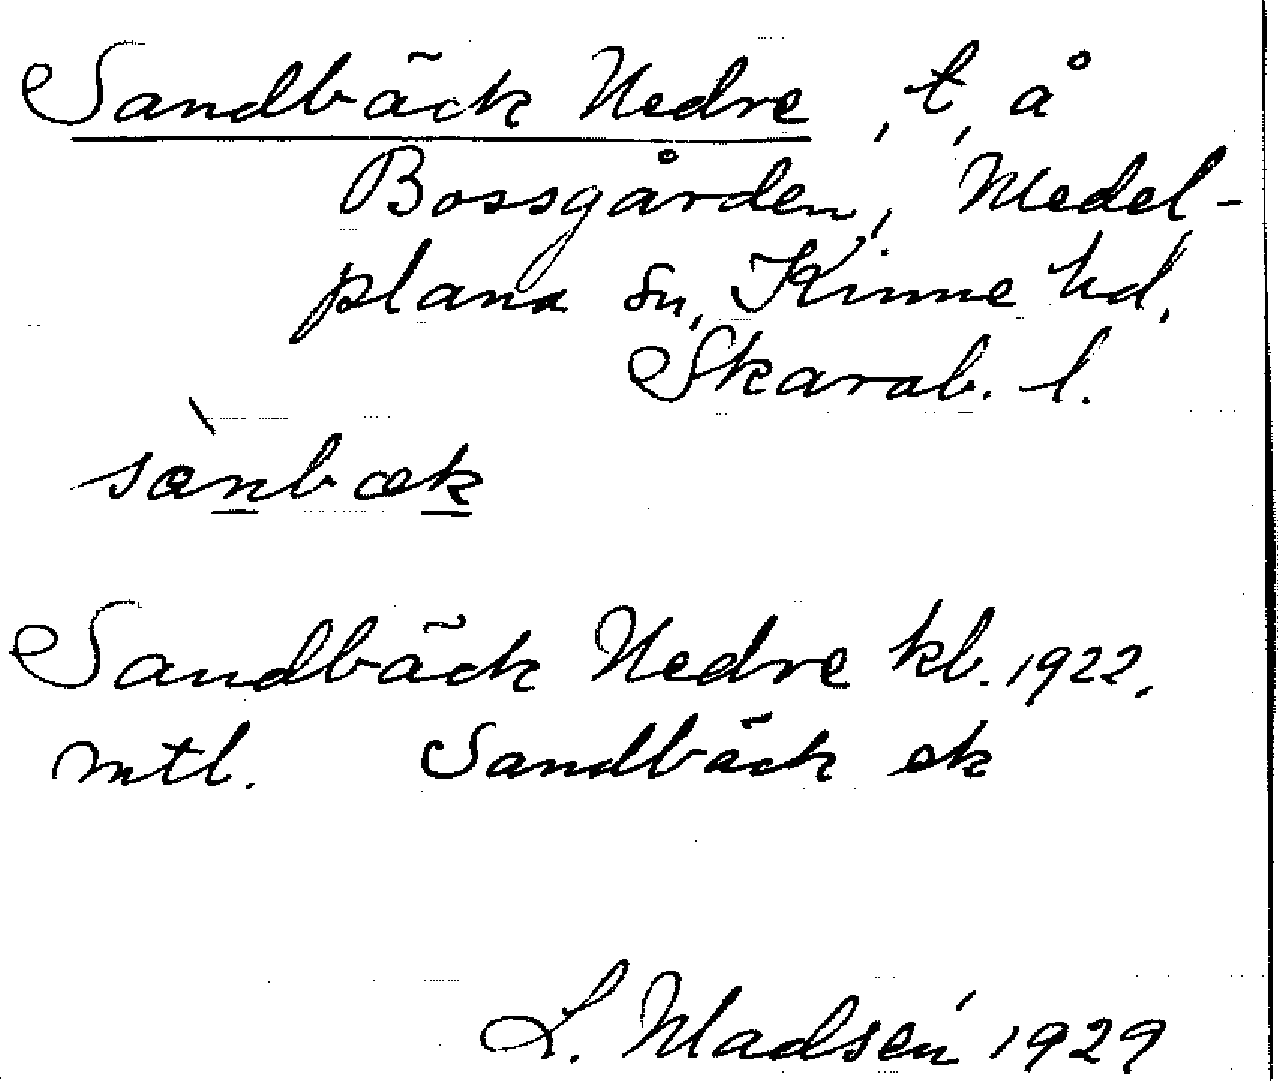 Sandbäck Nedre, t, å
Bossgården, Medel-
plana sn, Kinne hd,
Skarab. l.
sànbæk
Sandbäck Nedre kb. 1922.
mtl. Sandbäck ek
L. Madsén 1929